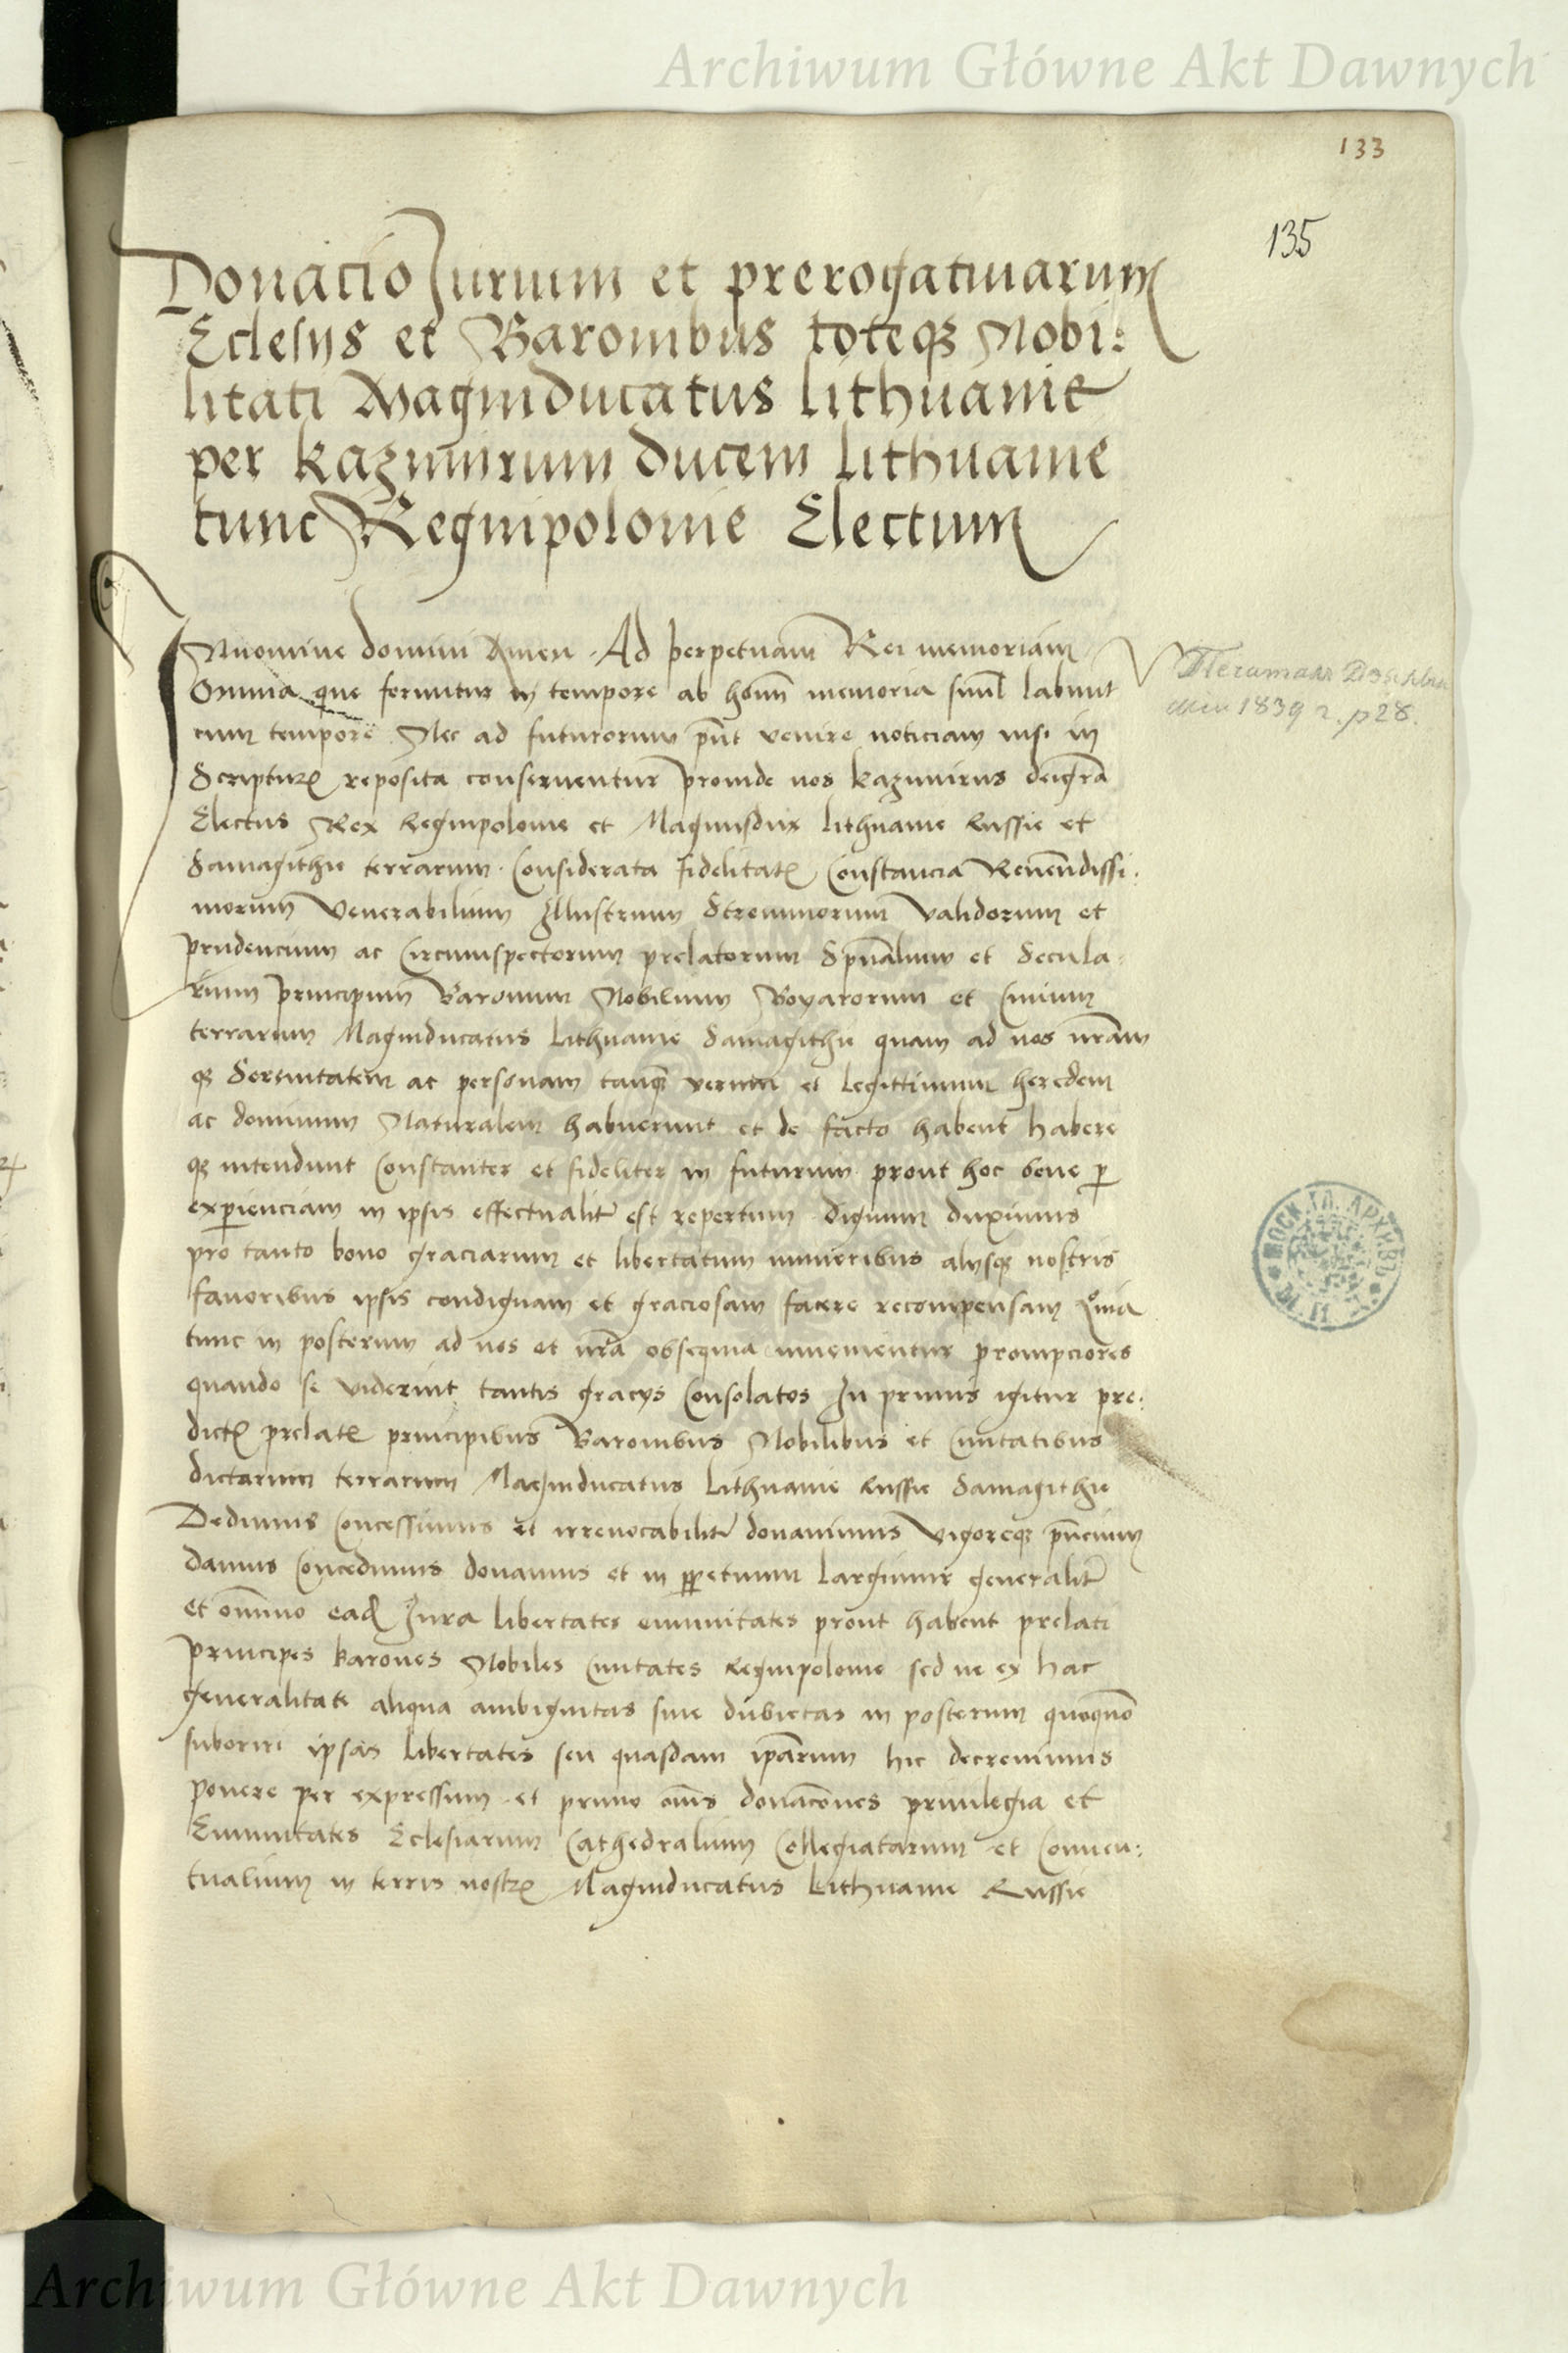 Archiwum Główne Akt Dawnych
133
135
Donacio Jurium et prerogatiuarum
Eclesijs et Baronibus toteqȝ Nobi:
litati Magniducatus Lithuanie
per Kazimirum ducem Lithuanie
tunc Regnipolonie Electum
In nomine domini Amen. Ad perpetuam Rei memoriam
Omnia que feruntur in tempore ab hom̄ memoria simul labunt
cum tempore Nec ad futurorum pn̄t venire noticiam nisi in
Scripturꝭ reposita conseruentur proinde nos Kazimirus deigrā
Electus Rex Regnipolonie et Magnusdux Lithuanie Russie et
Samagithie terrarum. Considerata fidelitatꝭ Constancia Reuen̄dissi:
morum Venerabilium Illustrium Strennuorum Validorum et
prudencium ac Circumspectorum prelatorum Spūalium et Secula
rium principum Baronum Nobilium Boyarorum et Ciuium
terrarum Magniducatus Lithuanie Samagithie quam ad nos nrām
qȝ Serenitatem ac personam tanqȝ verum et legittimum heredem
ac dominum Naturalem habuerunt et de facto habent habere
qȝ intendunt Constanter et fideliter in futurum prout hoc bene ꝑ
exꝑienciam in ipsis effectualitr̄ est repertum dignum duximus
pro tanto bono graciarum et libertatum muneribus alijsqȝ nostris
fauoribus ipsis condignam et graciosam facere recompensam Quia
tunc in posterum ad nos et nrā obsequia inuenientur prompciores
quando se viderint tantis gracijs Consolatos In primis igitur pre:
dictꝭ prelatꝭ principibus Baronibus Nobilibus et Ciuitatibus
dictarum terrarum Magniducatus Lithuanie Russie Samagithie
Dedimus Concessimus et irreuocabilitr̄ donauimus Vigoreqȝ pn̄cium
damus Concedimus donamus et in ꝑpetuum Largimur generalitr̄
et omnino eadꝭ Jura libertates emunitates prout habent prelati
principes barones Nobiles Ciuitates Regnipolonie sed ne ex hac
generalitate aliqua ambiguitas siue dubietas in posterum quoquō
suboriri ipsas libertates seu quasdam ip̄arum hic decreuimus
ponere per expressum et primo om̄s donac̄ones priuilegia et
Emunitates Eclesiarum Cathedralium Collegiatarum et Conuen:
tualium in terris nostrꝭ Magniducatus Lithuanie Russie
1839 г. p 28.
МОСК. ГЛ. АРХИВЪ
Archiwum Główne Akt Dawnych